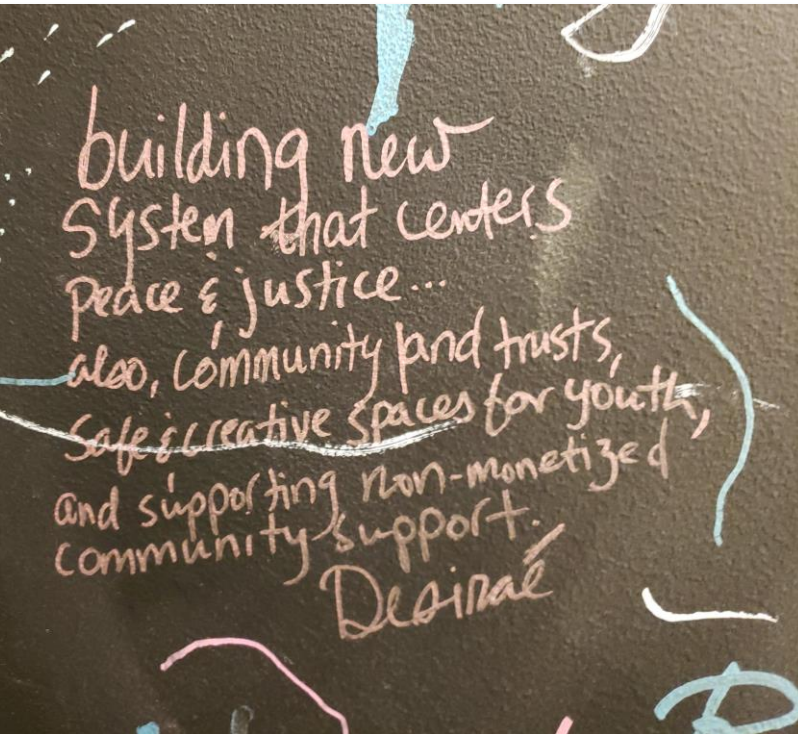 building new
system that centers
peace & justice...
also, community land trusts,
safe & creative spaces for youth,
and supporting non-monetized
community support.
Desiraé